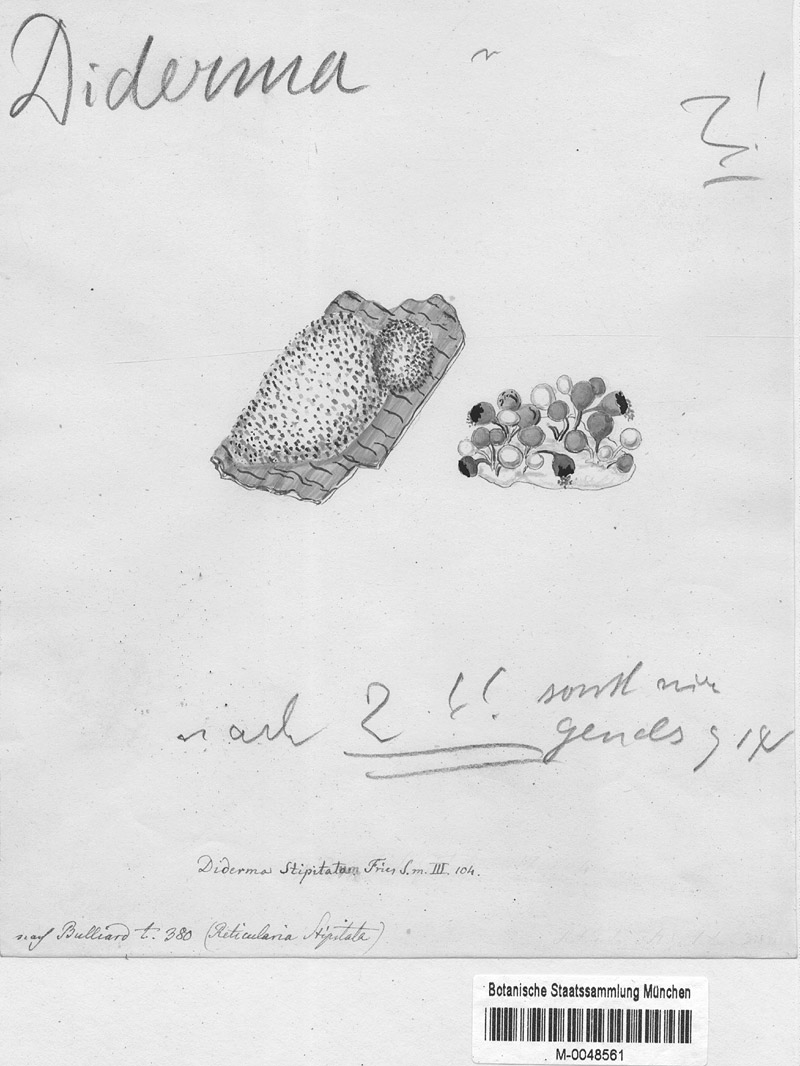 Diderma
nach 2 !! sonst nir
gends
Diderma Stipitatum Fries S.m. III. 104.
nach Bulliard t. 380 (Reticularia Stipitata)
Botanische Staatssammlung München
M-0048561